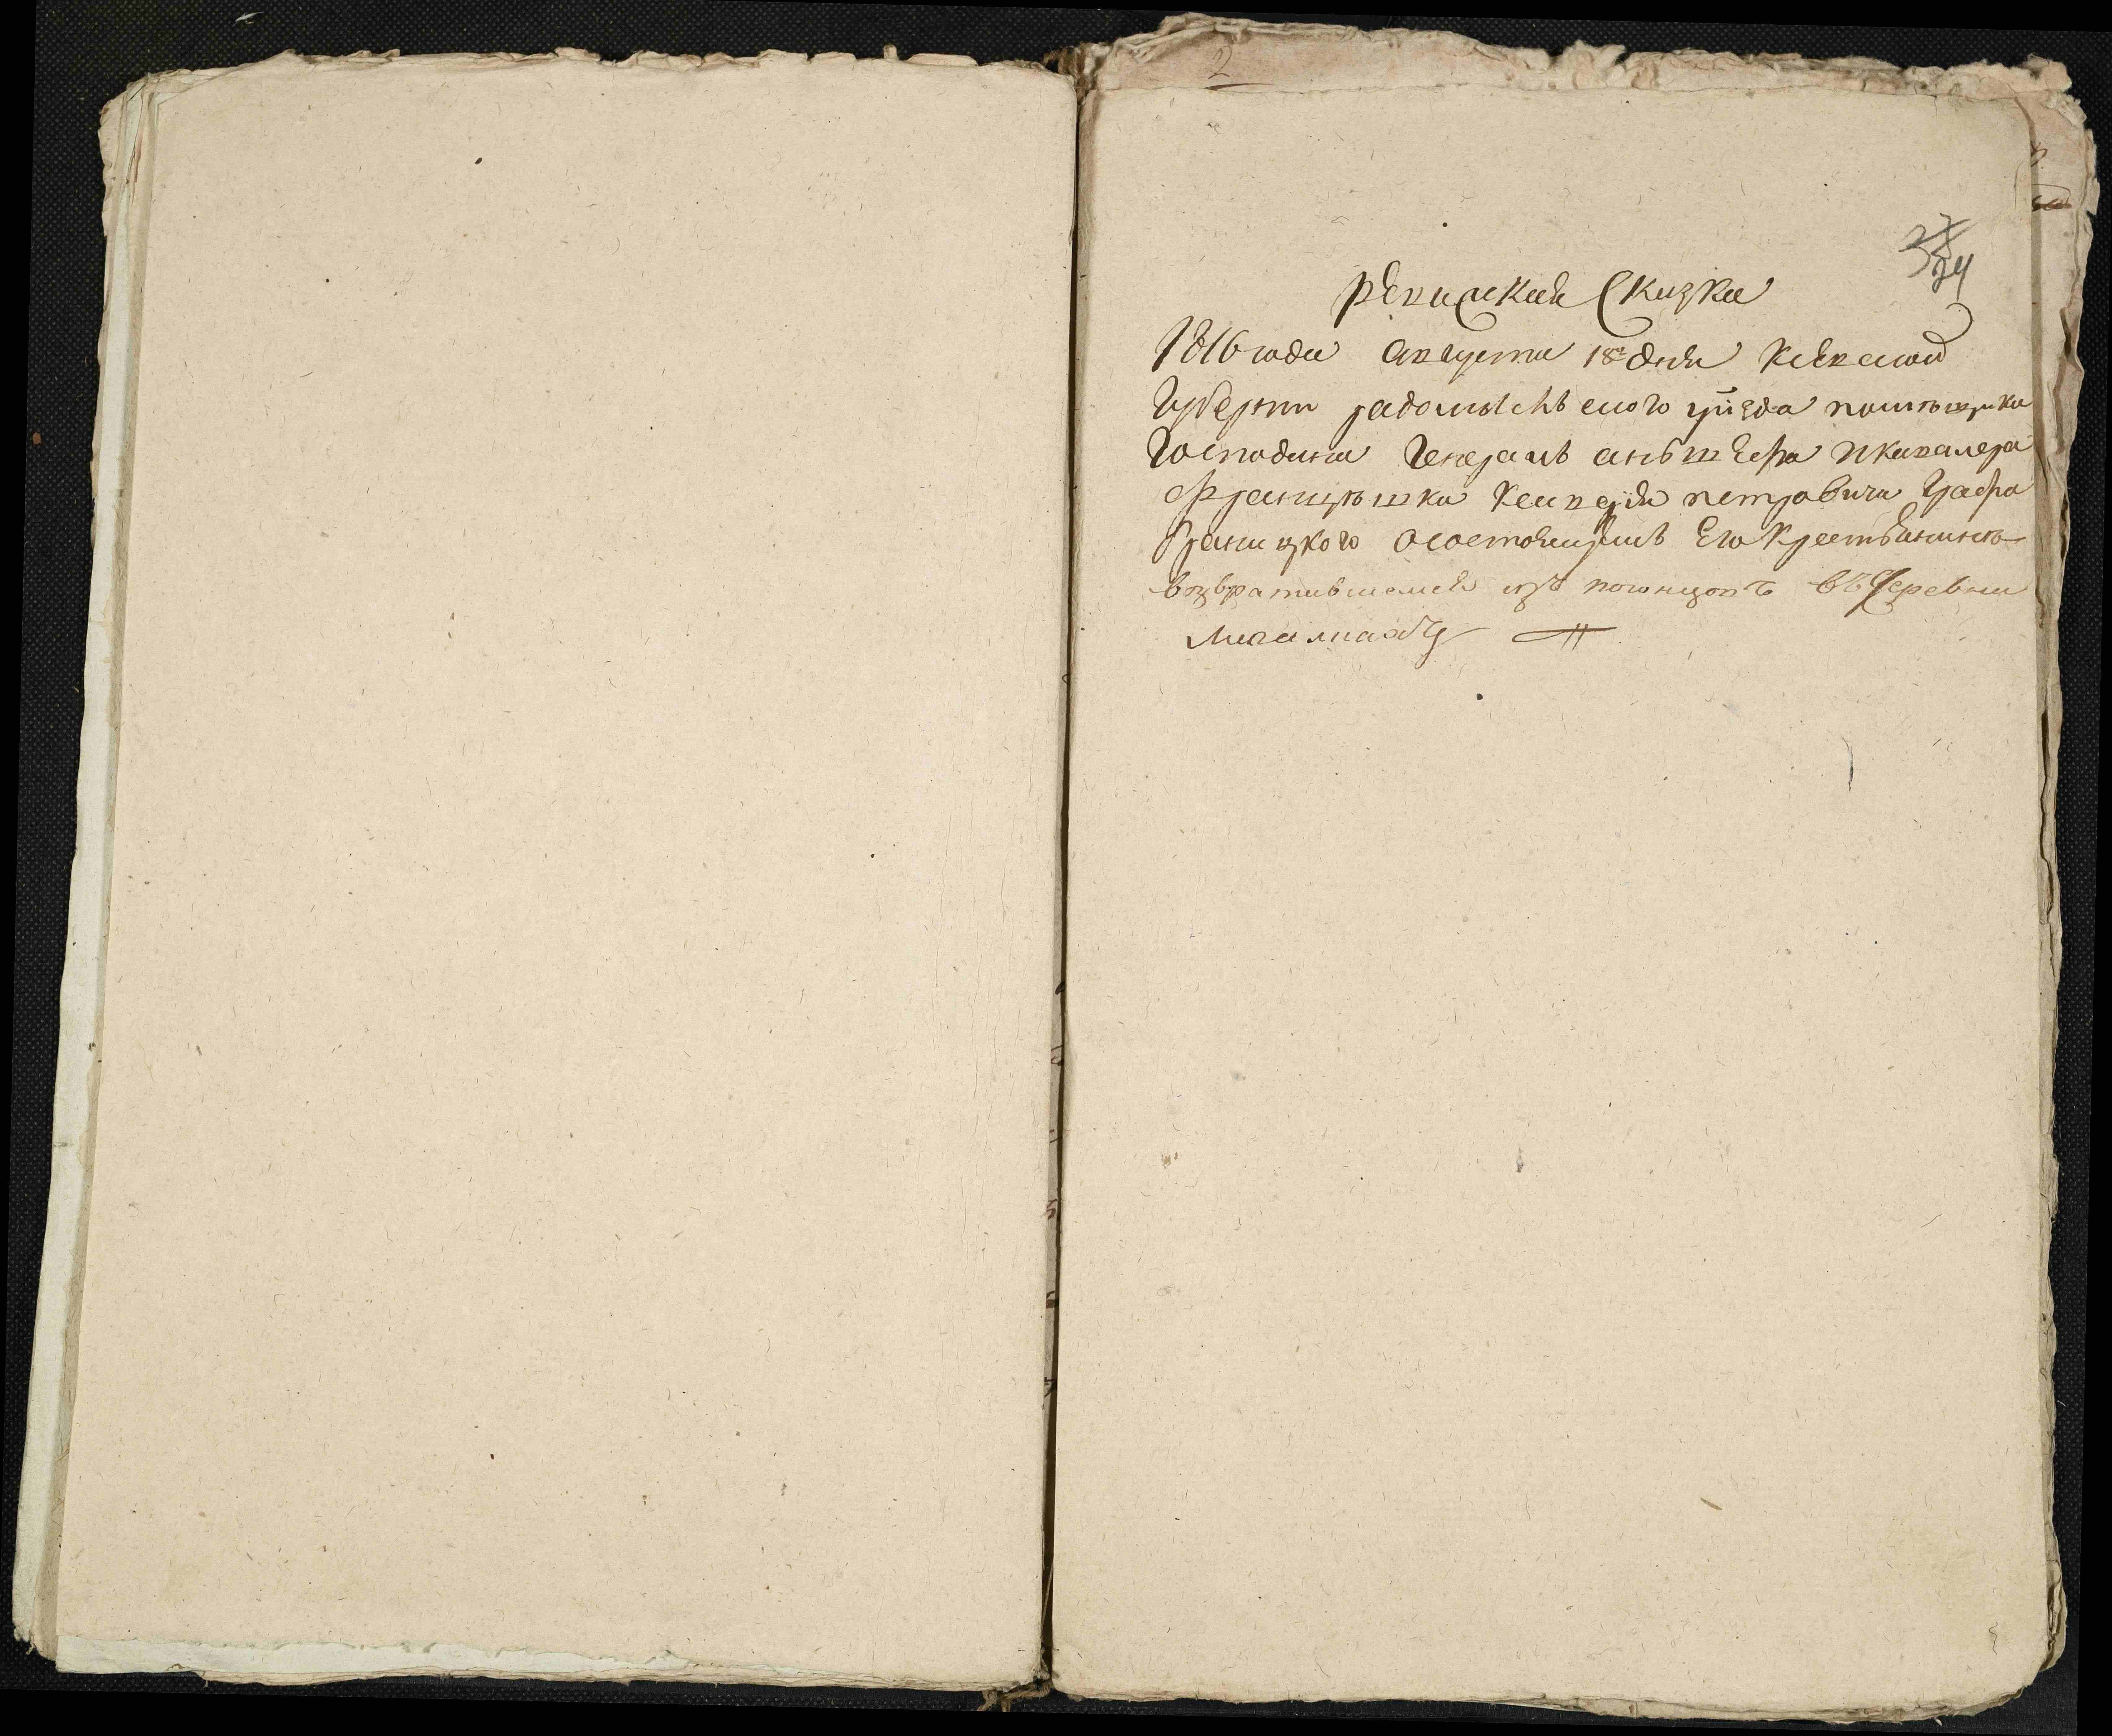 2
24
Ревиская Сказка
1816 года августа 18го дня Киевской
Губернии радомысльского уезда помещика
Господина Генералъ аньшефа Икавалера
Францышка Ксаверия петровича Графа
Браницкого Осостоящемъ Его Крестьянине
возвратившемся изъ въ Деревни